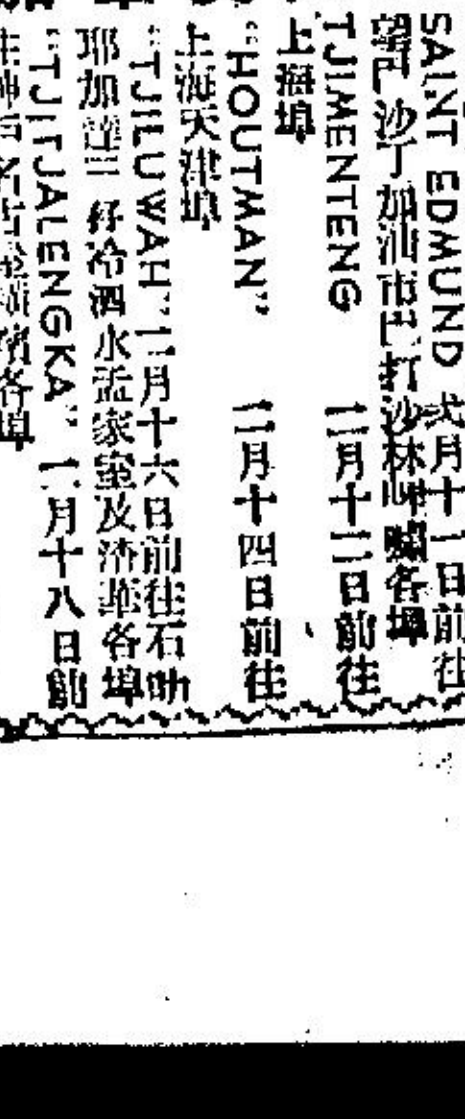 SAINT EDMUND 弍月十一日前往
望門沙丁加油市巴打沙林 各埠
TJIMENTENG 二月十二日前往
上海埠
“HOUTMAN” 二月十四日前往
上海天津埠
“TJILUWAH” 二月十六日前往石叻
耶加達三 冷泗水孟家 及 各埠
“TJITJALENGKA” 二月十八日前
往神戶名古屋橫濱各埠